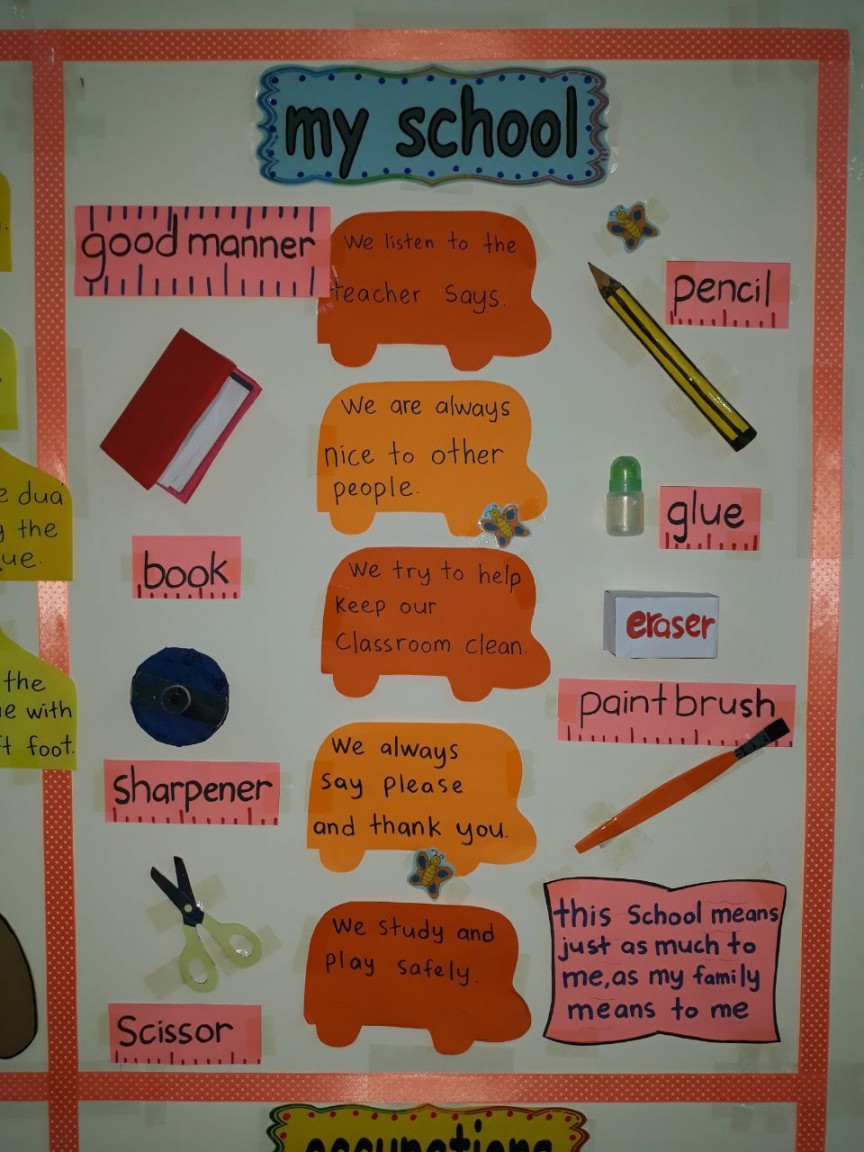 my school
good manner
We listen to the
teacher says.
pencil
We are always
nice to other
people.
glue
book
We try to help
keep our
Classroom clean.
eraser
paint brush
Sharpener
We always
Say please
and thank you.
Scissor
We study and
play safely.
this School means
just as much to
me, as my family
means to me
e dua
y the
ue.
the
e with
t foot.
occupations